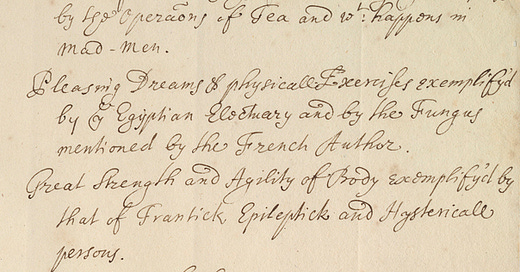 by the Operaõns of Tea and wt. happens in
Mad-Men.
Pleasing Dreams & physicall Exercises exemplify'd
by ye Egyptian Electuary and by the Fungus
mentioned by the French Author.
Great Strength and Agility of Body exemplify'd by
that of Frantick Epileptick and Hystericall
persons.